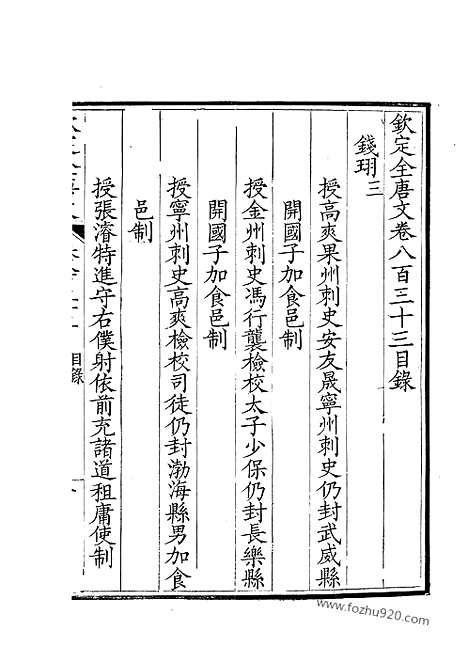 欽定全唐文卷八百三十三目錄
錢珝三
授高爽果州刺史安友晟寧州刺史仍封武威縣
開國子加食邑制
授金州刺史馮行襲檢校太子少保仍封長樂縣
開國子加食邑制
授寧州刺史高爽檢校司徒仍封渤海縣男加食
邑制
授張濬特進守右僕射依前充諸道租庸使制
目錄
www.fozhu920.com